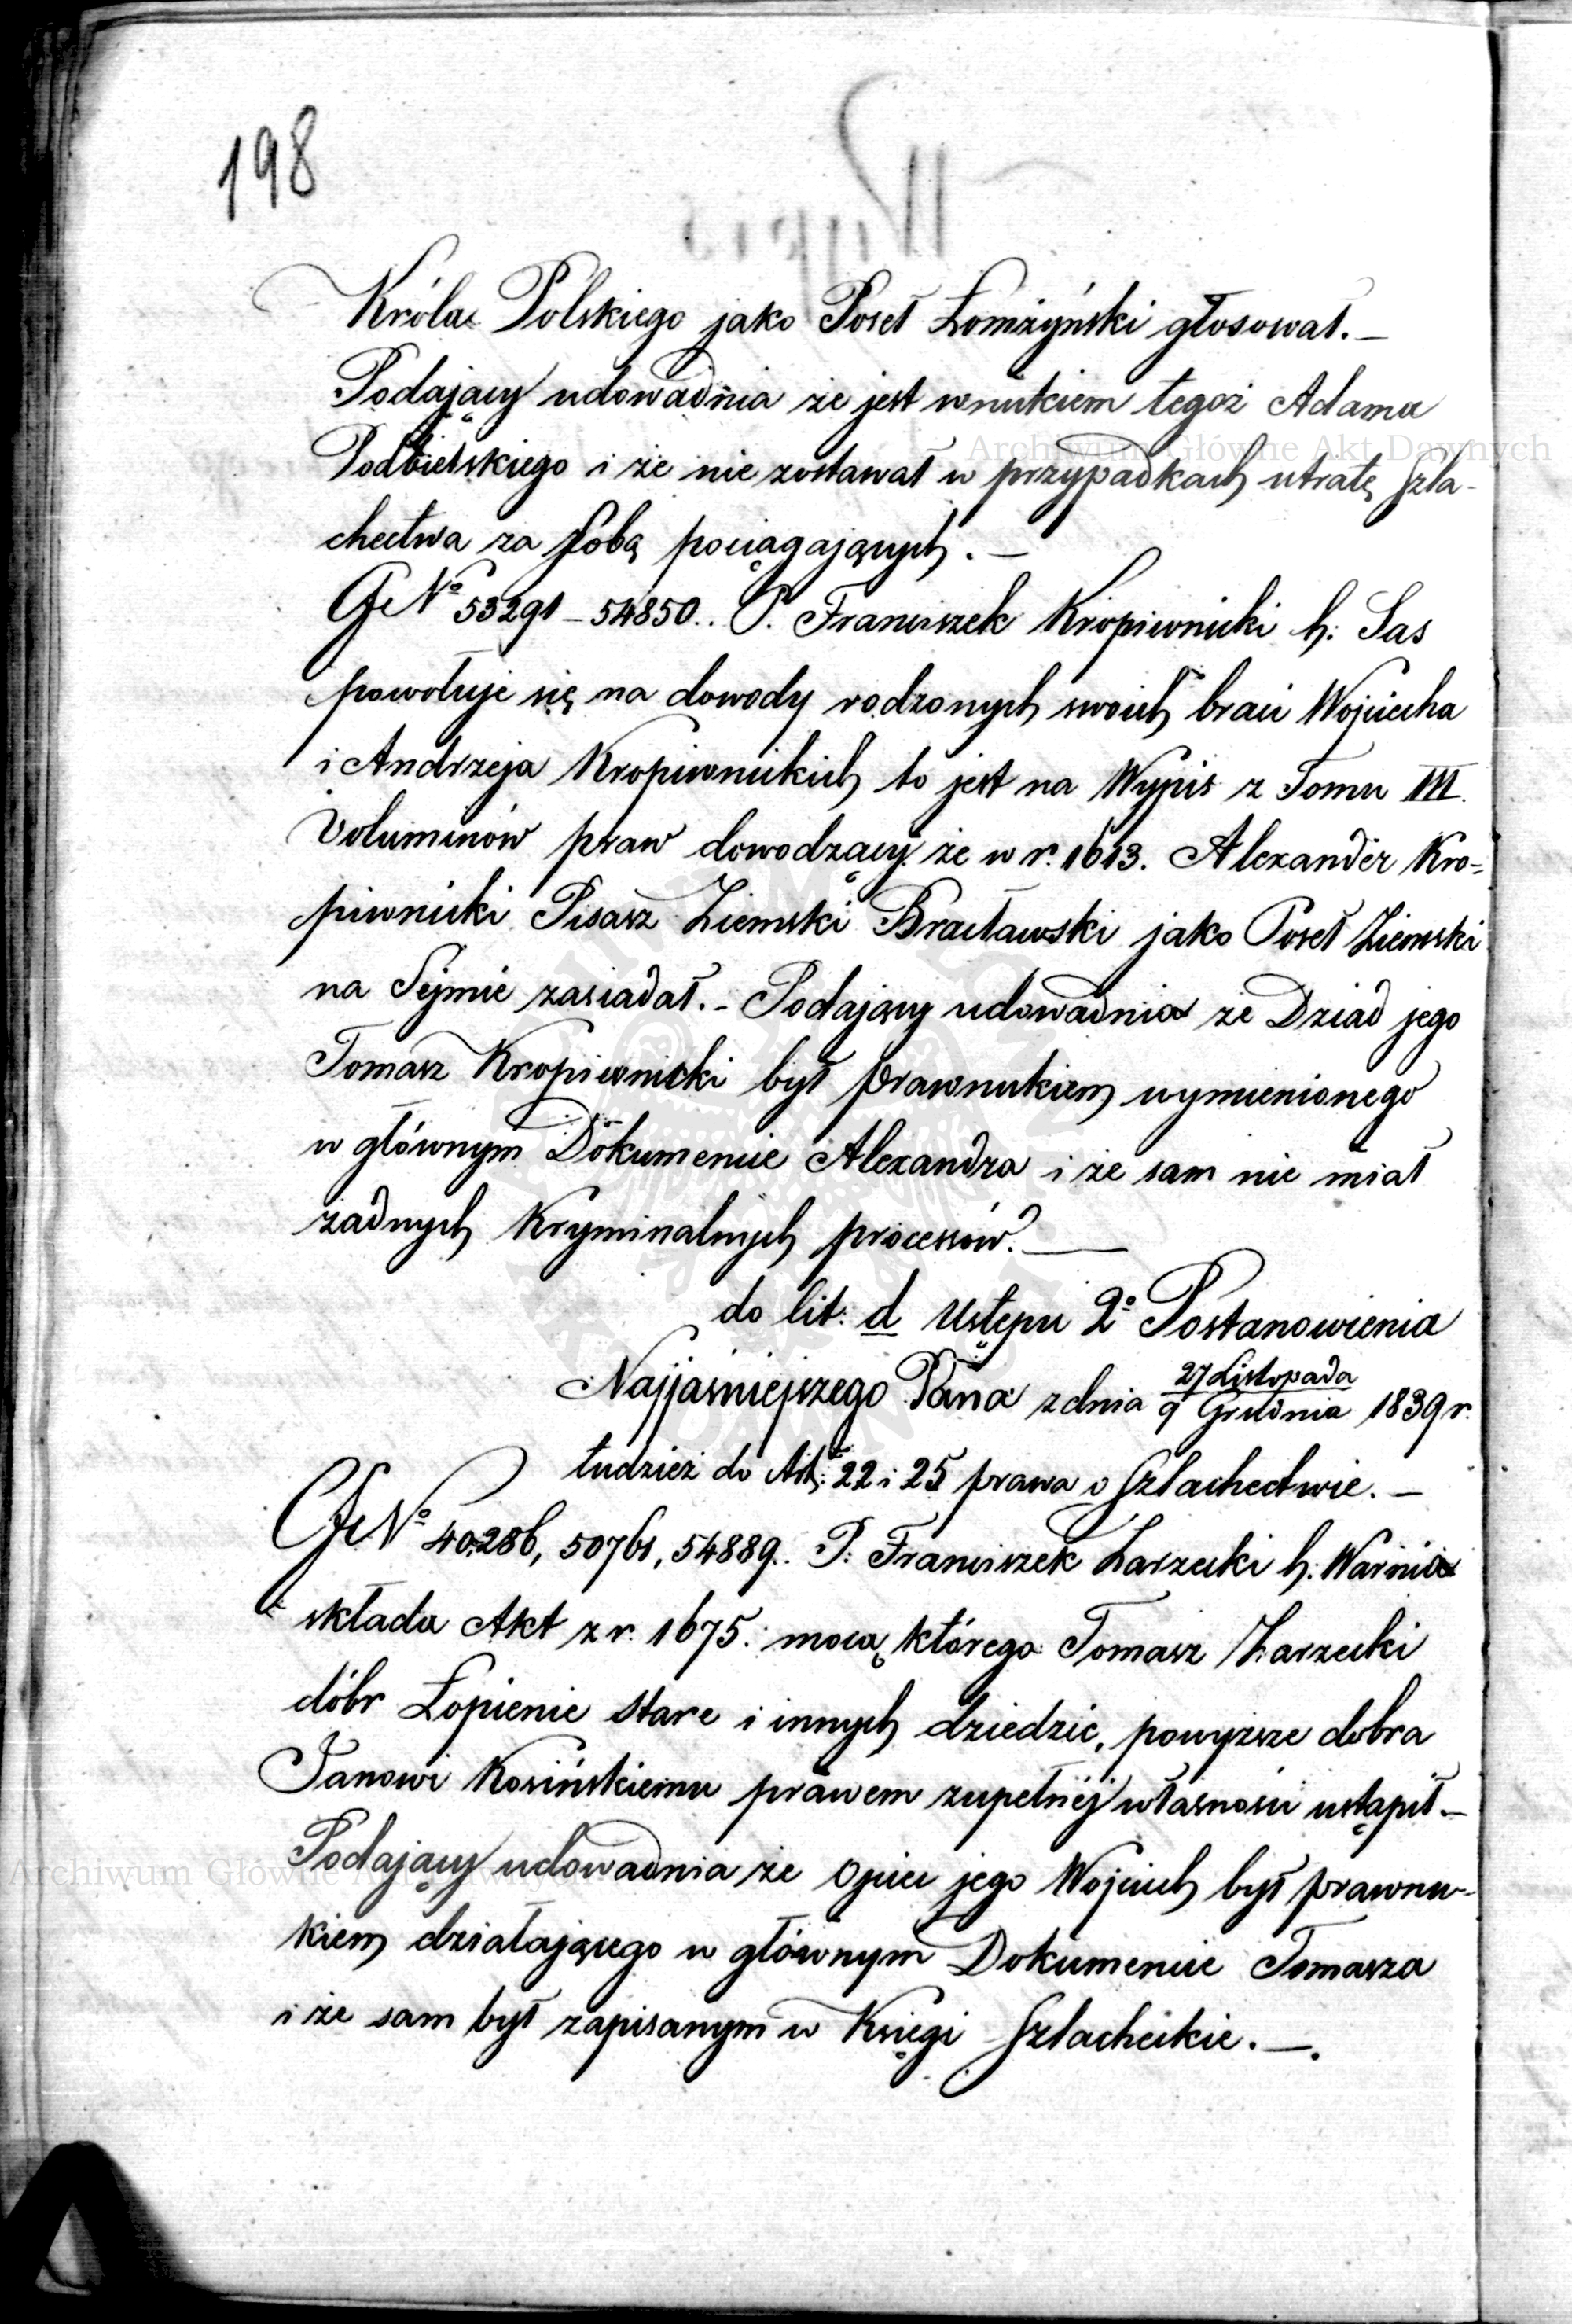 198
Króla Polskiego jako Poseł Łomżyński głosował. —
Podający udowadnia że jest wnukiem tegoż Adama
Podbielskiego i że nie zostawał w przypadkach utratę szla-
chectwa za sobą pociągających. —
No 53291 – 54850.. P. Franciszek Kropiwnicki h: Sas
powołuje się na dowody rodzonych swoich braci Wojciecha
i Andrzeja Kropiwnickich to jest na Wypis z Tomu III.
Voluminów praw dowodzący że w r. 1613. Alexander Kro-
piwnicki Pisarz Ziemski Bracławski jako Poseł Ziemski
na Sejmie zasiadał. – Podający udowadnia że Dziad jego
Tomasz Kropiwnicki był prawnukiem wymienionego
w głównym Dokumencie Alexandra i że sam nie miał
żadnych Kryminalnych processów. —
do lit: d Ustępu 2o Postanowienia
Najjaśniejszego Pana z dnia 27 Listopada / 9 Grudnia 1839 r.
tudzież do Art: 22 i 25 prawa o Szlachectwie. —
No 40286, 50761, 54889.. P: Franciszek Zarzecki h: Warnia
składa Akt z r. 1675. mocą którego Tomasz Zarzecki
dóbr Łopienie Stare i innych dziedzic, powyższe dobra
Janowi Kosińskiemu prawem zupełnéj własności ustąpił. —
Podający udowadnia że Ojciec jego Wojciech był prawnu-
kiem działającego w głównym Dokumencie Tomasza
i że sam był zapisanym w Księgi Szlacheckie. —.
Archiwum Główne Akt Dawnych